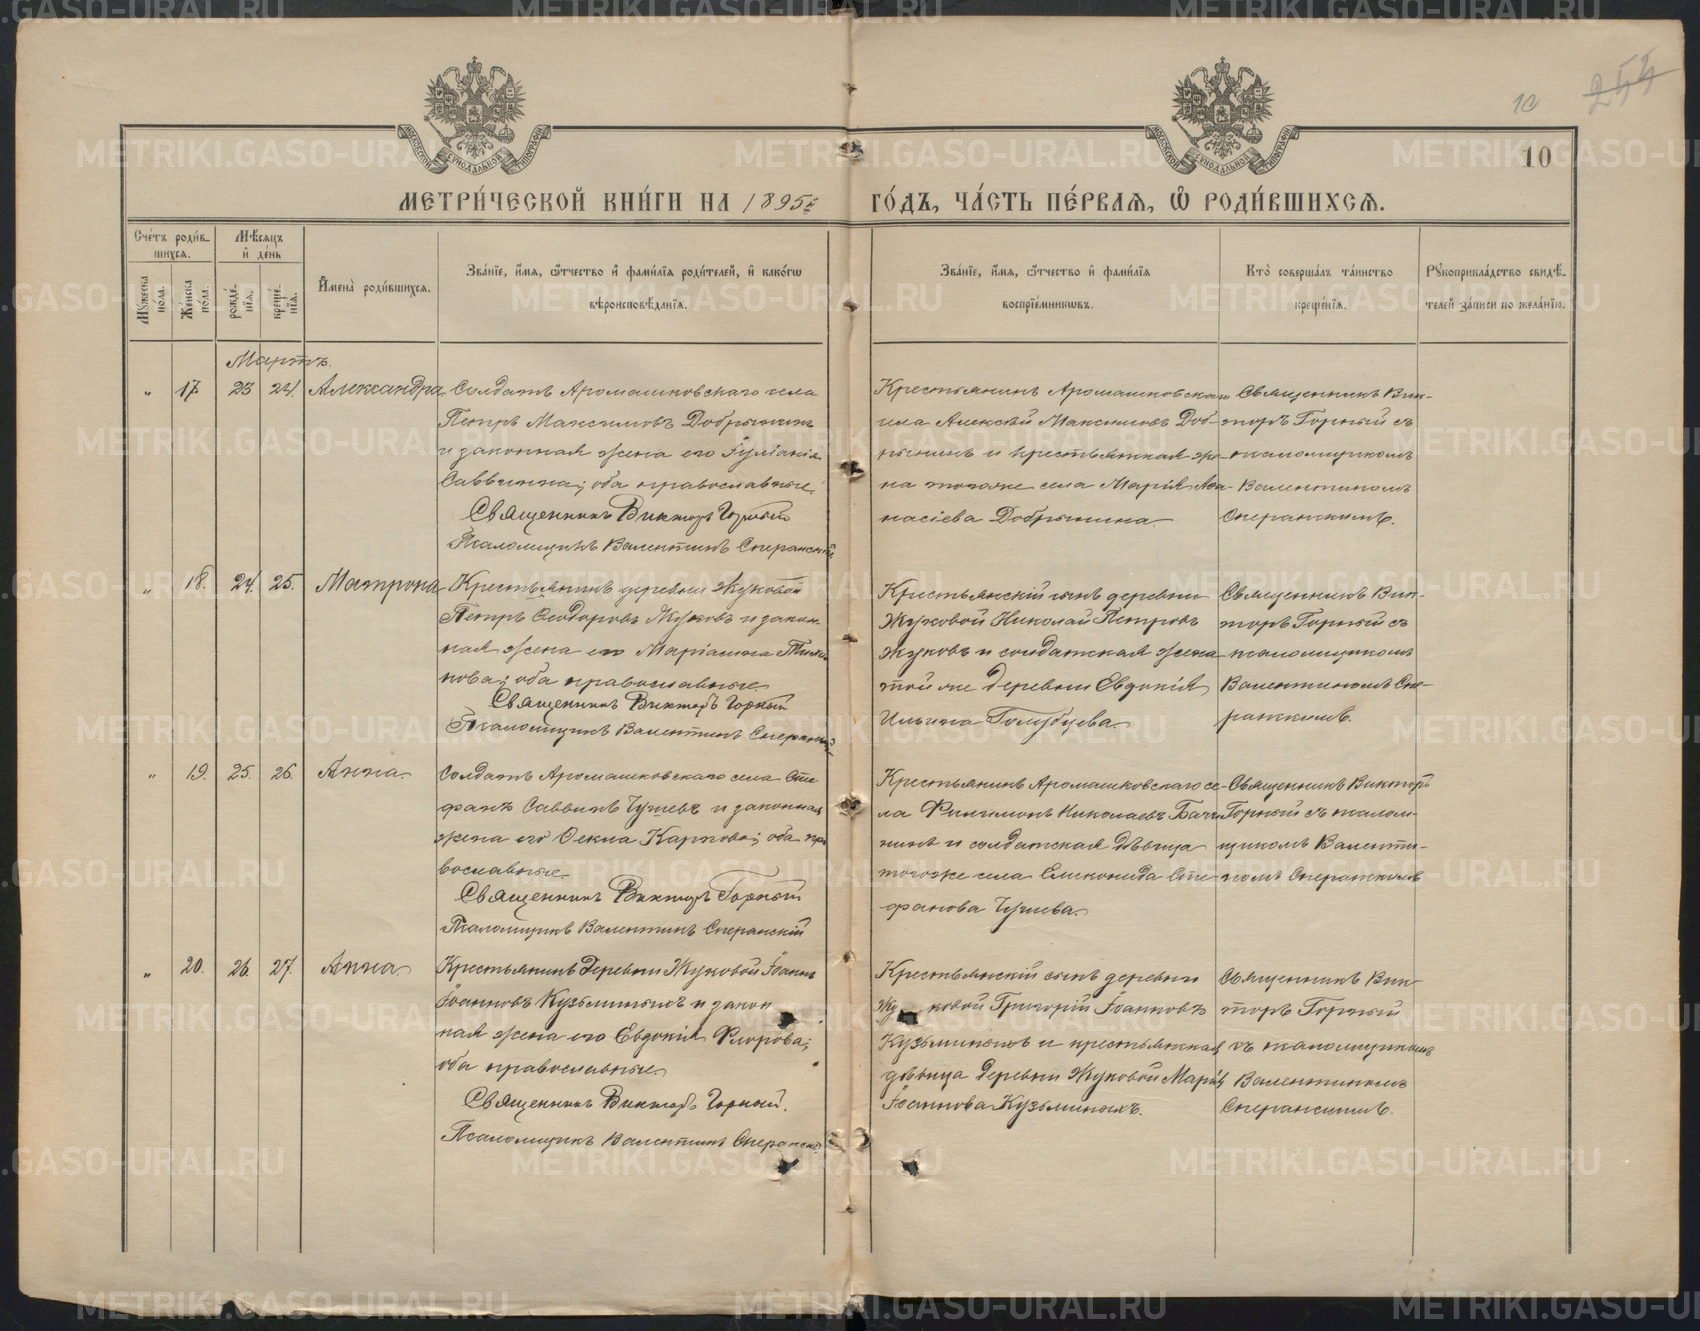 254
10
10
МЕТРИ́ЧЕСКОЙ КНИ́ГИ НА 1895й ГО́ДЪ, ЧА́СТЬ ПЕ́РВАѦ, Ѽ РОДИ́ВШИХСѦ.
Сче́тъ роди́в-
шихсѧ.
Мꙋ́жеска пола.
Же́нска по́ла.
Мѣ́сѧцъ
и҆ де́нь
рожде́-
нїѧ.
креще́-
нїѧ.
И҆мена̀ роди́вшихсѧ.
Зва́нїе, и҆́мѧ, ѻ҆́тчество и҆ фами́лїѧ роди́телей, и҆ како́гѡ
вѣроисповѣ́данїѧ.
Зва́нїе, и҆́мѧ, ѻ҆́тчество и҆ фами́лїѧ
воспрїе́мникѡвъ.
Кто̀ соверша́лъ та́инство
креще́нїѧ.
Рꙋкоприкла́дство свидѣ́-
телей за́писи по жела́нїю.
Мартъ.
„ 17 23 24. Александра
Солдатъ Аромашковскаго села
Петръ Максимовъ Добрынинъ
и законная жена его Іуліанія
Саввична; оба православные.
Священникъ Викторъ Горный
Псаломщикъ Валентинъ Сперанскій
Крестьянинъ Аромашковскаго
села Алексѣй Максимовъ Доб-
рынинъ и крестьянская же-
на тогоже села Марія Аѳа-
насіева Добрынина.
Священникъ Вик-
торъ Горный съ
псаломщикомъ
Валентиномъ
Сперанскимъ.
„ 18. 24. 25. Матрона
Крестьянинъ деревни Жуковой
Петръ Ѳеодоровъ Жуковъ и закон-
ная жена его Маріамна
нова; оба православные.
Священникъ Викторъ Горный
Псаломщикъ Валентинъ Сперанскій
Крестьянскій сынъ деревни
Жуковой Николай Петровъ
Жуковъ и солдатская жена
той же деревни Евдокія
Ильина Голубцева.
Священникъ Вик-
торъ Горный съ
псаломщикомъ
Валентиномъ Спе-
ранскимъ.
„ 19. 25. 26. Анна.
Солдатъ Аромашковскаго села Сте-
фанъ Саввинъ Чушевъ и законная
жена его Ѳекла Карпова; оба пра-
вославные.
Священникъ Викторъ Горный
Псаломщикъ Валентинъ Сперанскій
Крестьянинъ Аромашковскаго се-
ла Филимонъ Николаевъ
нинъ и солдатская дѣвица
тогоже села Елисконида Сте-
фанова Чушева.
Священникъ Викторъ
Горный съ псалом-
щикомъ Валенти-
номъ Сперанскимъ
„ 20. 26. 27. Анна
Крестьянинъ деревни Жуковой Іоаннъ
Іоанновъ Кузьминыхъ и закон
ная жена его Евдокія Флорова;
оба православные.
Священникъ Викторъ Горный.
Псаломщикъ Валентинъ Сперанскій
Крестьянскій сынъ деревни
Жуковой Григорій Іоанновъ
Кузьминыхъ и крестьянская
дѣвица деревни Жуковой Марія
Іоаннова Кузьминыхъ.
Священникъ Вик-
торъ Горный
съ псаломщикомъ
Валентиномъ
Сперанскимъ.